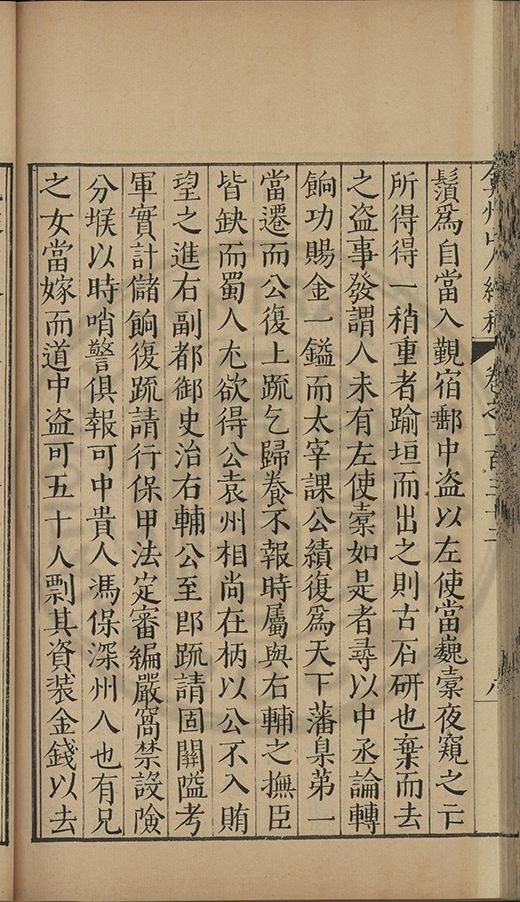 弇州山人續稿 卷之一百三十二 八
鬚爲自當入覲宿郵中盜以左使當巍橐夜窺之亡
所得得一稍重者踰垣而出之則古石研也棄而去
之盜事發謂人未有左使橐如是者尋以中丞論轉
餉功賜金一鎰而太宰課公績復爲天下藩臬第一
當遷而公復上䟽乞歸養不報時屬與右輔之撫臣
皆缺而蜀人尤欲得公袁州相尚在柄以公不入賄
望之進右副都御史治右輔公至卽䟽請固關隘考
軍實計儲餉復䟽請行保甲法定審編嚴窩禁設險
分堠以時哨警俱報可中貴人馮保深州人也有兄
之女當嫁而道中盜可五十人剽其資装金錢以去